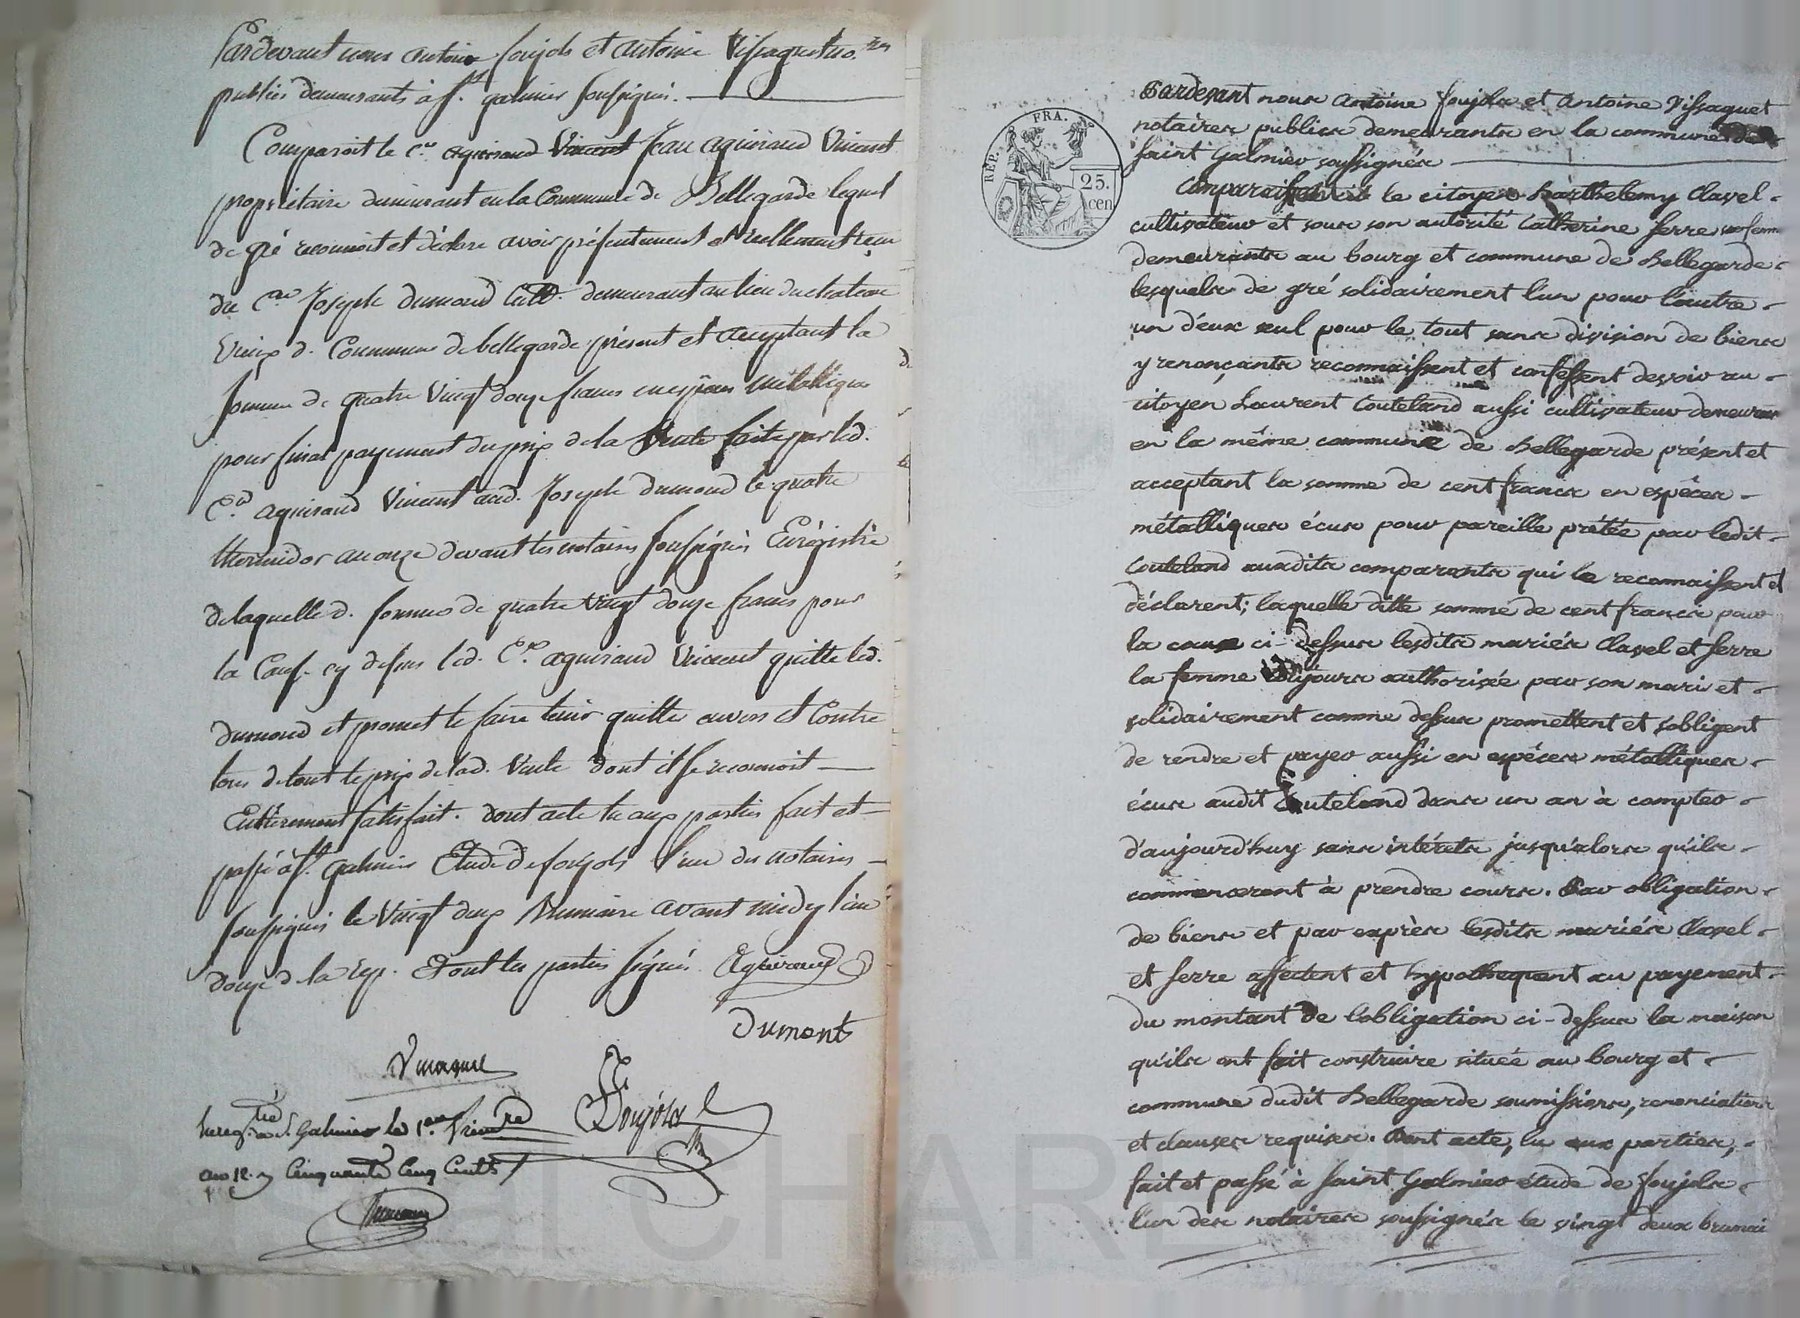 Pardevant nous Antoine foujols et antoine Vissaguet no.res
publics demeurants a st. galmier soussignés.
Comparoit le c.en aguiraud Vincent Jean aguiraud Vincent
propriétaire demeurant en la Commune de Bellegarde lequel
de gré reconnoit et déclare avoir présentement et reellement reçu
du c.en Joseph dumond cult. demeurant au lieu du chateau
Vieux d. Commune de bellegarde présent et acceptant la
somme de quatre Vingt douze francs en espèces métalliques
pour final payement du prix de la Vente faite par led.
C.en aguiraud Vincent aud. Joseph dumond le quatre
thermidor an onze devant les notaires soussignés Enregistré
de laquelle d. somme de quatre vingt douze francs pour
la Caus. cy dessus led. C.en aguiraud Vincent quitte led.
dumond et promet le faire tenir quitte envers et Contre
tous de tout le prix de lad. Vente dont il se reconnoit
Entièrement satisfait. dont acte lu aux parties fait et
passé a st. galmier Etude de foujols l'un des notaires
soussignés le Vingt deux Brumaire avant midy l'an
douze de la rep. Et ont les parties signé. Aguiraud
Dumont
Vincent
foujols
Enreg.tré a St. Galmier le 1.er frimaire
an 12. Cinquante Cinq Cents
RÉP. FRA.
25. cen
Pardevant nous Antoine foujols et Antoine Vissaguet
notaires publics demeurants en la commune de
saint Galmier soussignés
Comparaissent le citoyen Barthelemy Clavel
cultivateur et sous son autorité Catherine ferre sa femme
demeurants au bourg et commune de Bellegarde
lesquels de gré solidairement l'un pour l'autre
un d'eux seul pour le tout sans division de biens
y renonçants reconnaissent et confessent devoir au
citoyen Laurent Couteland aussi cultivateur demeurant
en la même commune de Bellegarde présent et
acceptant la somme de cent francs en espèces
métalliques écus pour pareille prêtée par ledit
Couteland auxdits comparants qui le reconnaissent et
déclarent; laquelle ditte somme de cent francs pour
la cause ci-dessus lesdits mariés Clavel et ferre
la femme toujours authorisée par son mari et
solidairement comme dessus promettent et s'obligent
de rendre et payer aussi en espèces métalliques
écus audit Couteland dans un an à compter
d'aujourd'huy sans intérêts jusqu'alors qu'ils
commenceront à prendre cours. Par obligation
de biens et par exprès lesdits mariés Clavel
et ferre affectent et hypothequent au payement
du montant de l'obligation ci-dessus la maison
qu'ils ont fait construire située au bourg et
commune dudit Bellegarde soumissions, renonciations
et clauses requises. Dont acte, lu aux parties,
fait et passé à saint Galmier étude de foujols
l'un des notaires soussignés le vingt deux brumai